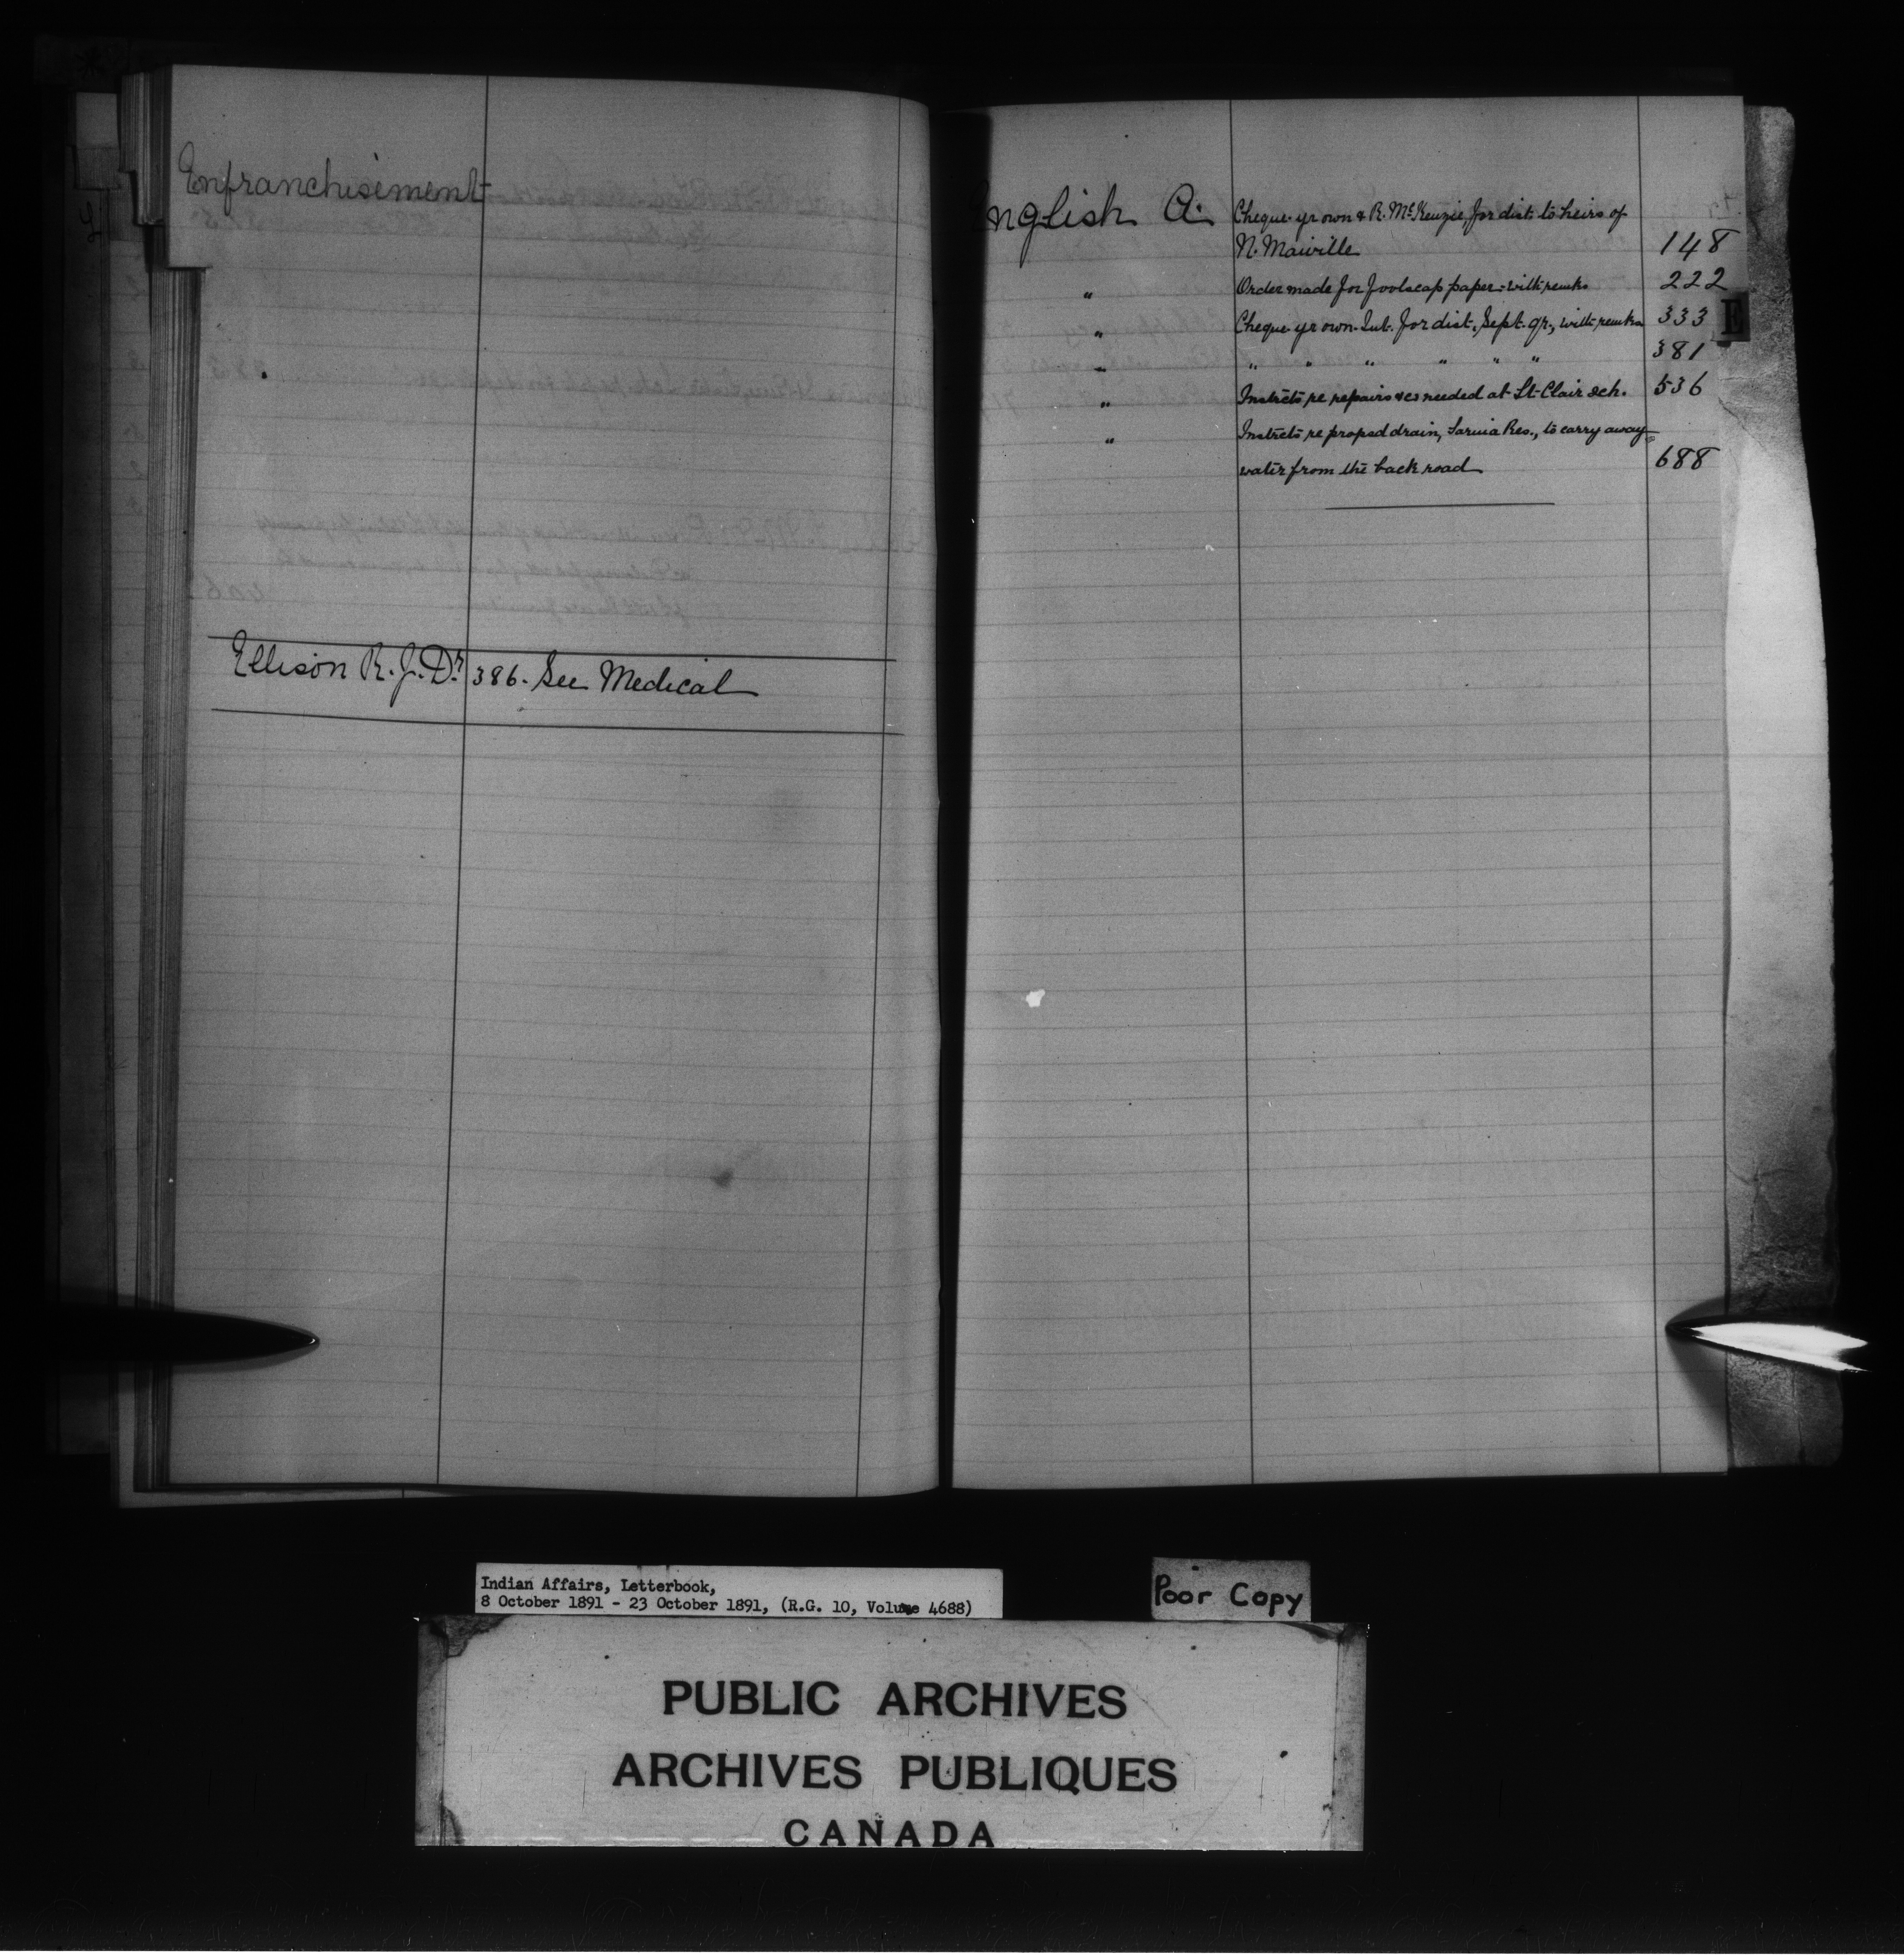 Enfranchisement
Ellison R. J. Dr. 386. See Medical
English A. Cheque yr own & R. McKenzie, for dist. to heirs of
N. Maiville 148
" Order made for foolscap paper - with remks 222
" Cheque yr own Int. for dist. Sept. qr., with remks 333
" " " " " " " 381
" Instrcts re repairs &c needed at St. Clair sch. 536
" Instrcts re propsd drain, Sarnia Res., to carry away
water from the back road 688
E
Indian Affairs, Letterbook,
8 October 1891 - 23 October 1891, (R.G. 10, Volume 4688)
Poor Copy
PUBLIC ARCHIVES
ARCHIVES PUBLIQUES
CANADA